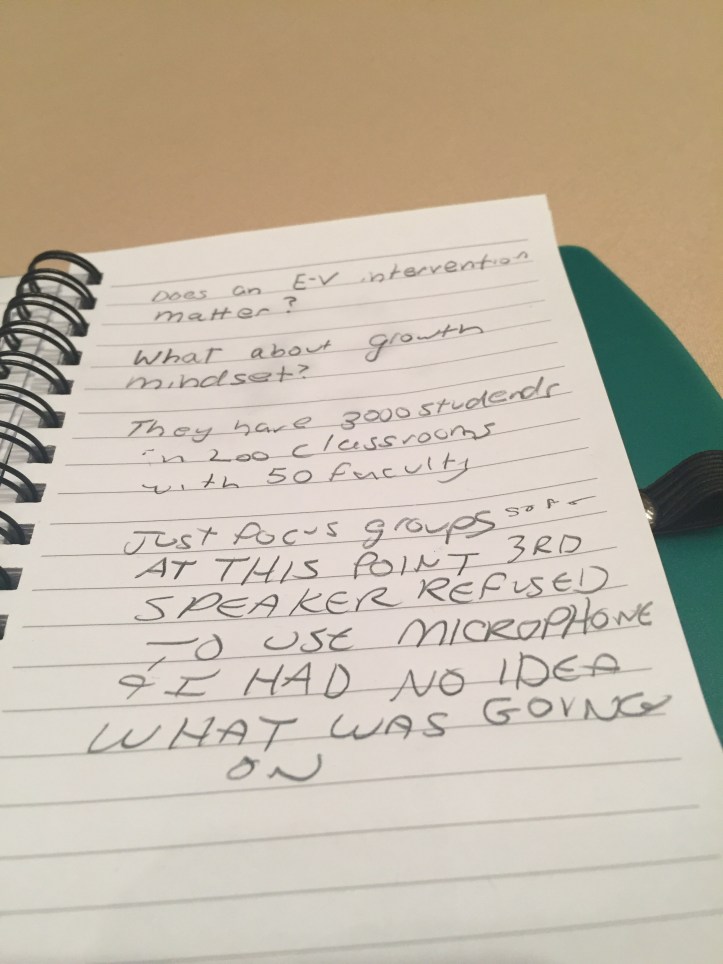 Does an E-V intervention
matter?
What about growth
mindset?
They have 3000 studends
in 200 classrooms
with 50 faculty
Just focus groups
AT THIS POINT 3RD
SPEAKER REFUSED
TO USE MICROPHONE
& I HAD NO IDEA
WHAT WAS GOING
ON